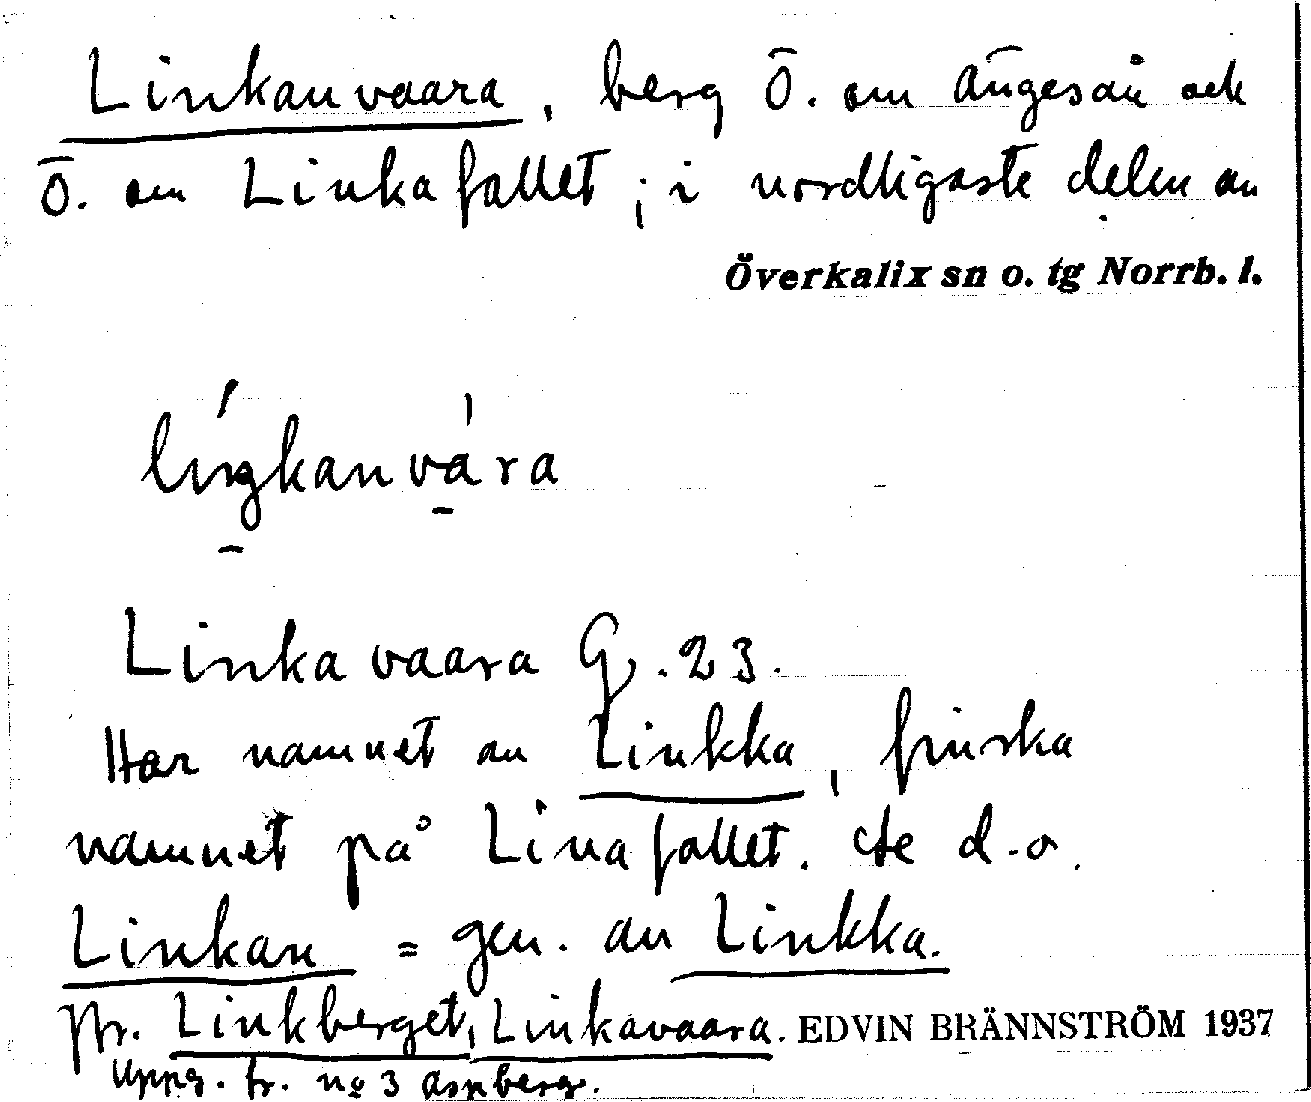 Linkanvaara, berg Ö. om Ängesån och
Ö. om Linkafallet; i nordligaste delen av
Överkalix sn o. tg Norrb. l.
Linkavaara G. 23.
Har namnet av Linkka, finska
namnet på Linafallet. Se d.o.
Linkan = gen. av Linkka.
Jfr. Linkberget, Linkavaara. EDVIN BRÄNNSTRÖM 1937
Uppg. fr. no 3 Aspberg.